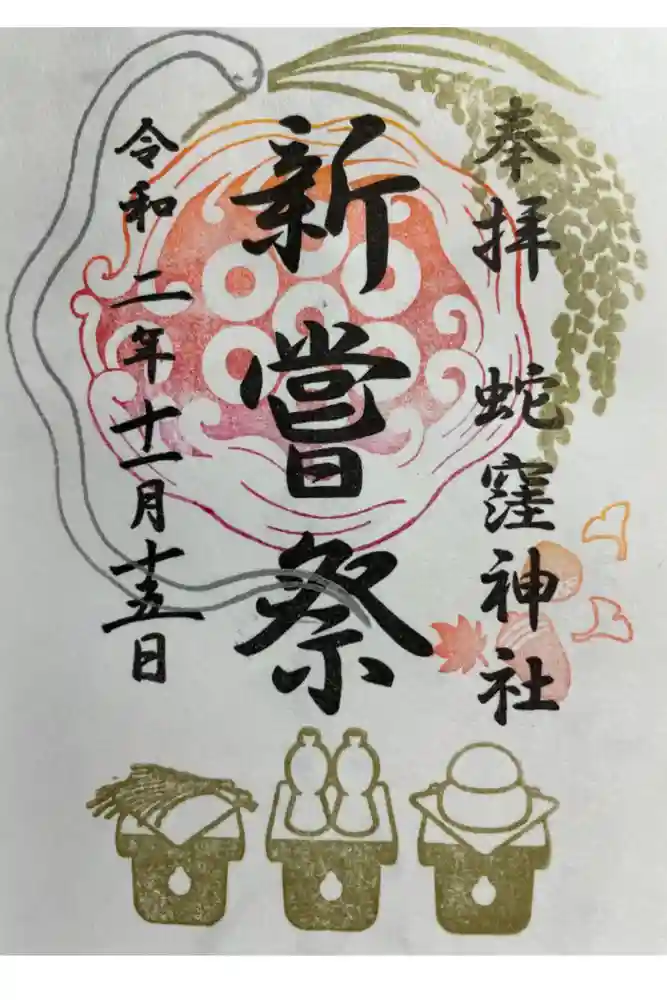 奉拝 蛇窪神社
新嘗祭
令和二年十一月十五日